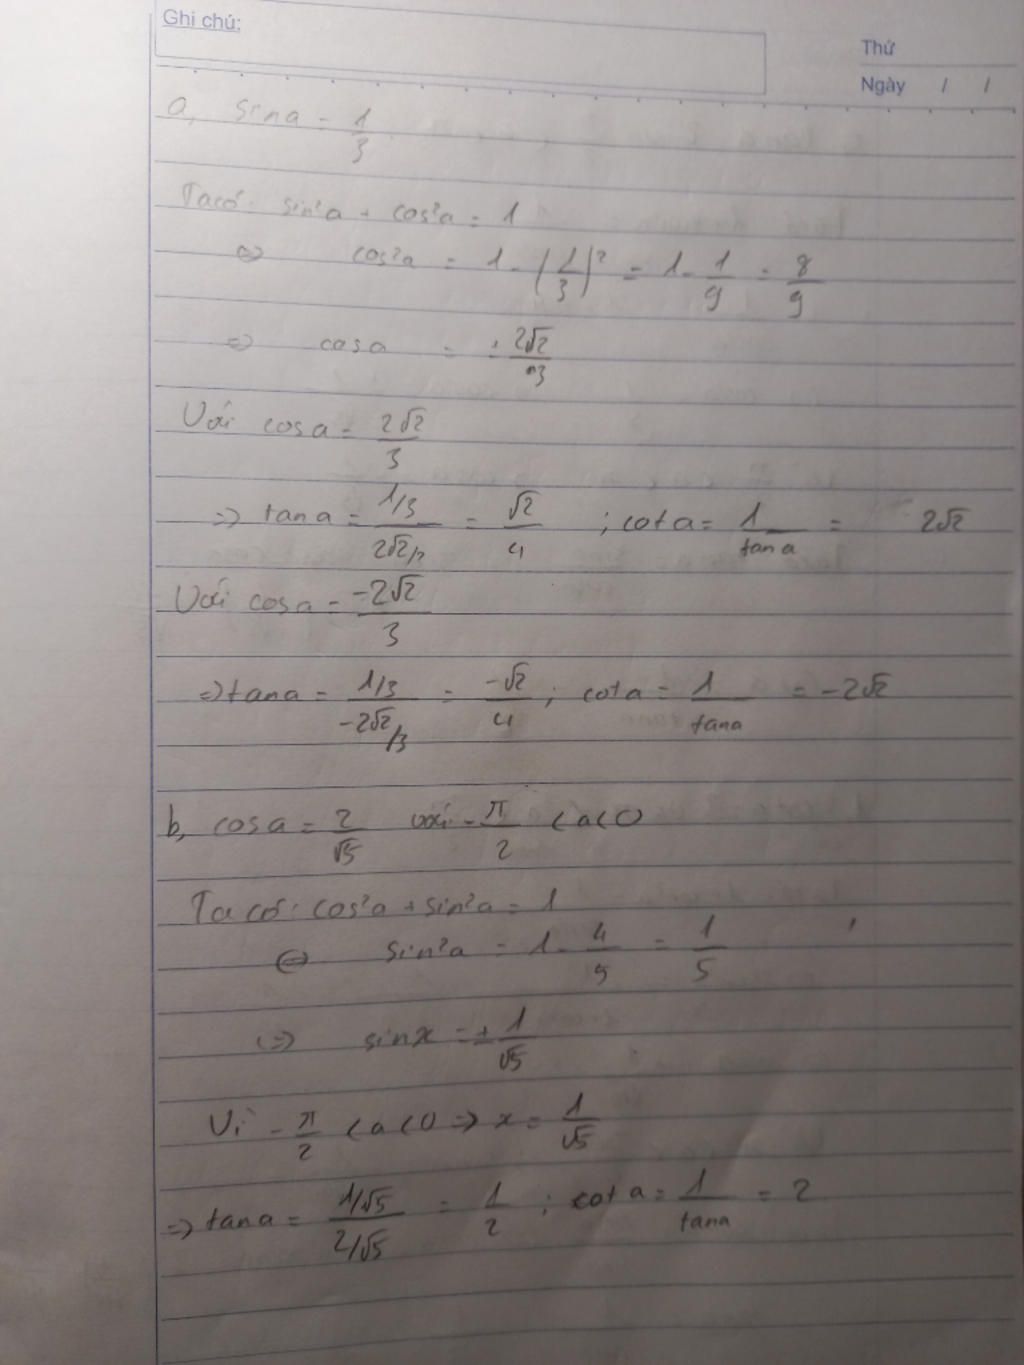 Ghi chú:
Thứ
Ngày / /
a, sina = 1/3
Ta có: sin²a + cos²a = 1
⇔ cos²a = 1 - (1/3)² = 1 - 1/9 = 8/9
⇒ cosa = ± 2√2/3
Với cosa = 2√2/3
⇒ tana = (1/3)/(2√2/3) = √2/4 ; cota = 1/tana = 2√2
Với cosa = -2√2/3
⇒ tana = (1/3)/(-2√2/3) = -√2/4 ; cota = 1/tana = -2√2
b, cosa = 2/√5 với -π/2 < a < 0
Ta có: cos²a + sin²a = 1
⇔ sin²a = 1 - 4/5 = 1/5
⇔ sinx = ± 1/√5
Vì -π/2 < a < 0 ⇒ x = 1/√5
⇒ tana = (1/√5)/(2/√5) = 1/2 ; cota = 1/tana = 2